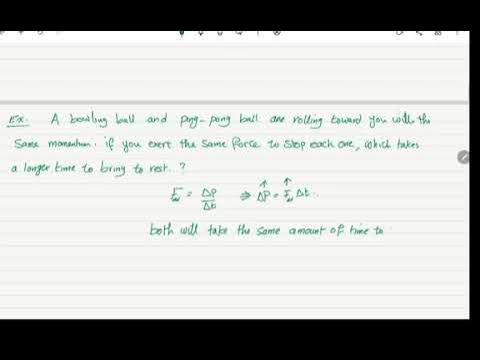 Ex. A bowling ball and ping-pong ball are rolling toward you with the
same momentum. if you exert the same force to stop each one, which takes
a longer time to bring to rest. ?
F = ΔP/Δt ⇒ ΔP = F Δt.
both will take the same amount of time to